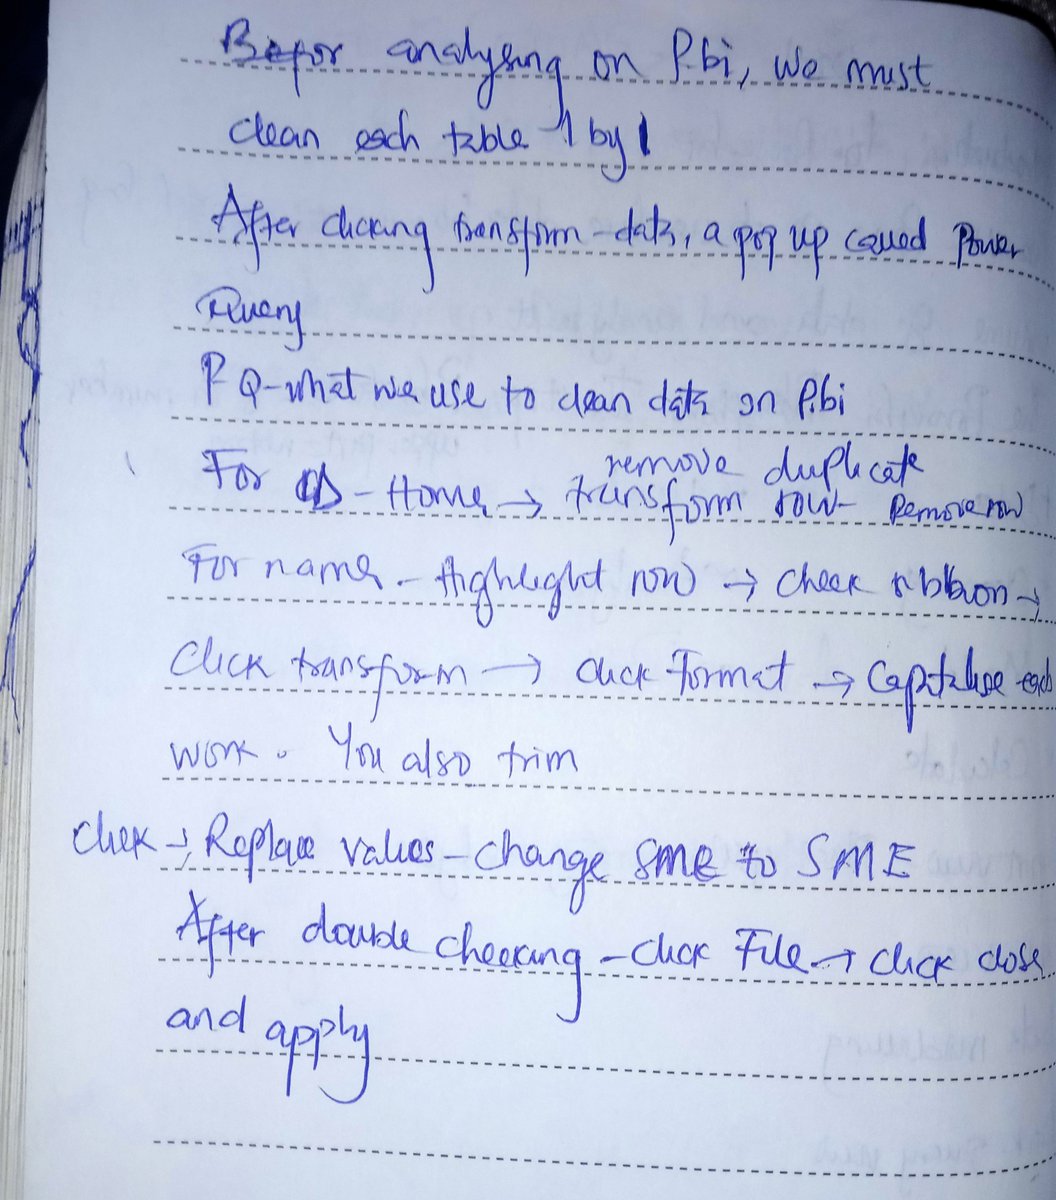 Befor analysing on P.bi, we must
clean each table 1 by 1
After clicking transform-data, a pop up called Power
Query
P Q-what we use to clean data on P.bi
remove duplicate
For ID - Home → transform row- Remove row
For name - Highlight row → check ribbon →
Click transform → click Format → Capitalise each
work. You also trim
Chek → Replace values - change SME to SME
After double checking - click File → click close
and apply